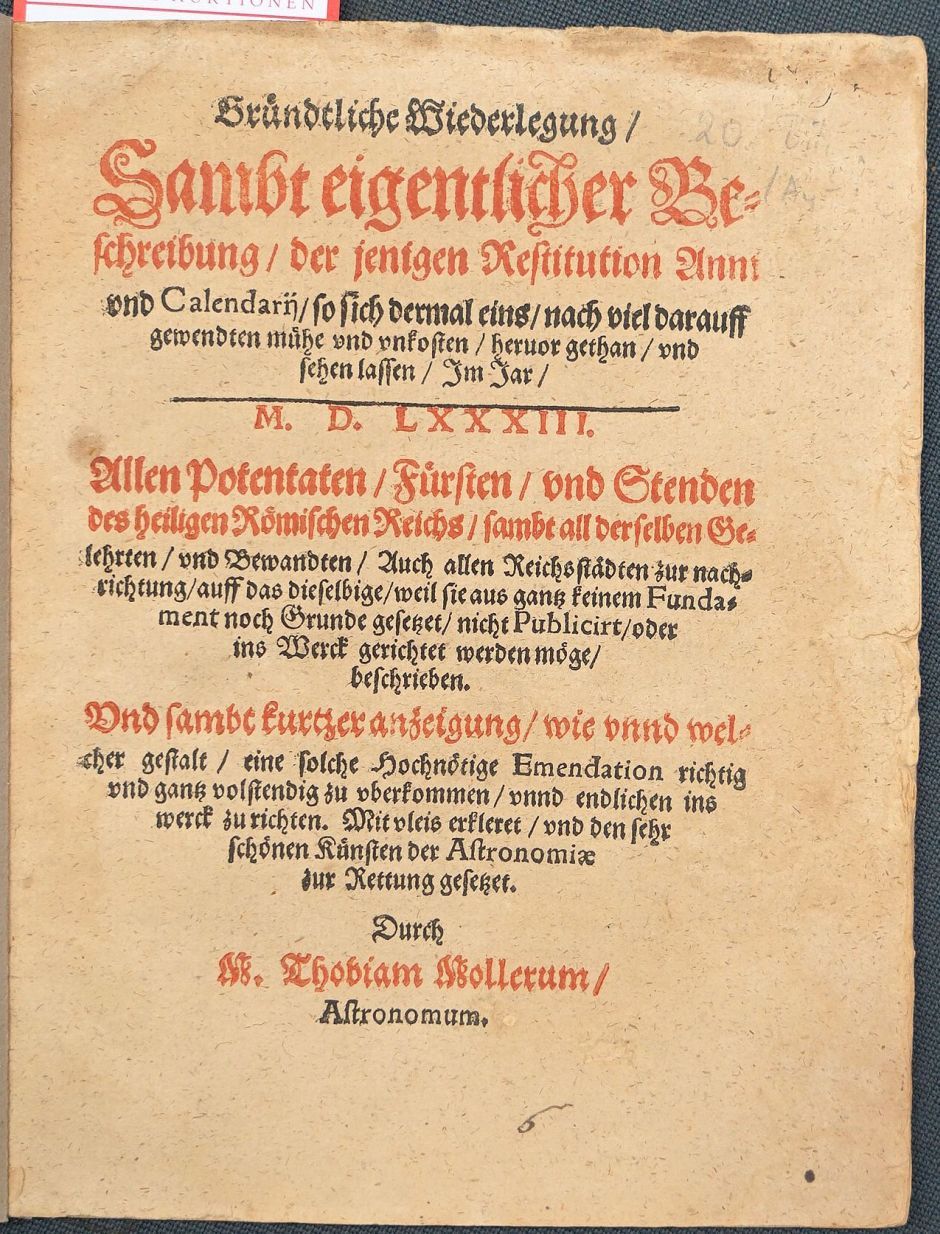 AUKTIONEN
Gründtliche Wiederlegung /
Sambt eigentlicher Be-
schreibung / der jenigen Restitution Anni
vnd Calendarij / so sich dermal eins / nach viel darauff
gewendten mühe vnd vnkosten / heruor gethan / vnd
sehen lassen / Im Jar /
M. D. LXXXIII.
Allen Potentaten / Fürsten / vnd Stenden
des heiligen Römischen Reichs / sambt all derselben Ge-
lehrten / vnd Bewandten / Auch allen Reichsstädten zur nach-
richtung / auff das dieselbige / weil sie aus gantz keinem Funda-
ment noch Grunde gesetzet / nicht Publicirt / oder
ins Werck gerichtet werden möge /
beschrieben.
Vnd sambt kurtzer anzeigung / wie vnnd wel-
cher gestalt / eine solche Hochnötige Emendation richtig
vnd gantz volstendig zu vberkommen / vnnd endlichen ins
werck zu richten. Mit vleis erkleret / vnd den sehr
schönen Künsten der Astronomiæ
zur Rettung gesetzet.
Durch
M. Thobiam Mollerum /
Astronomum.
6